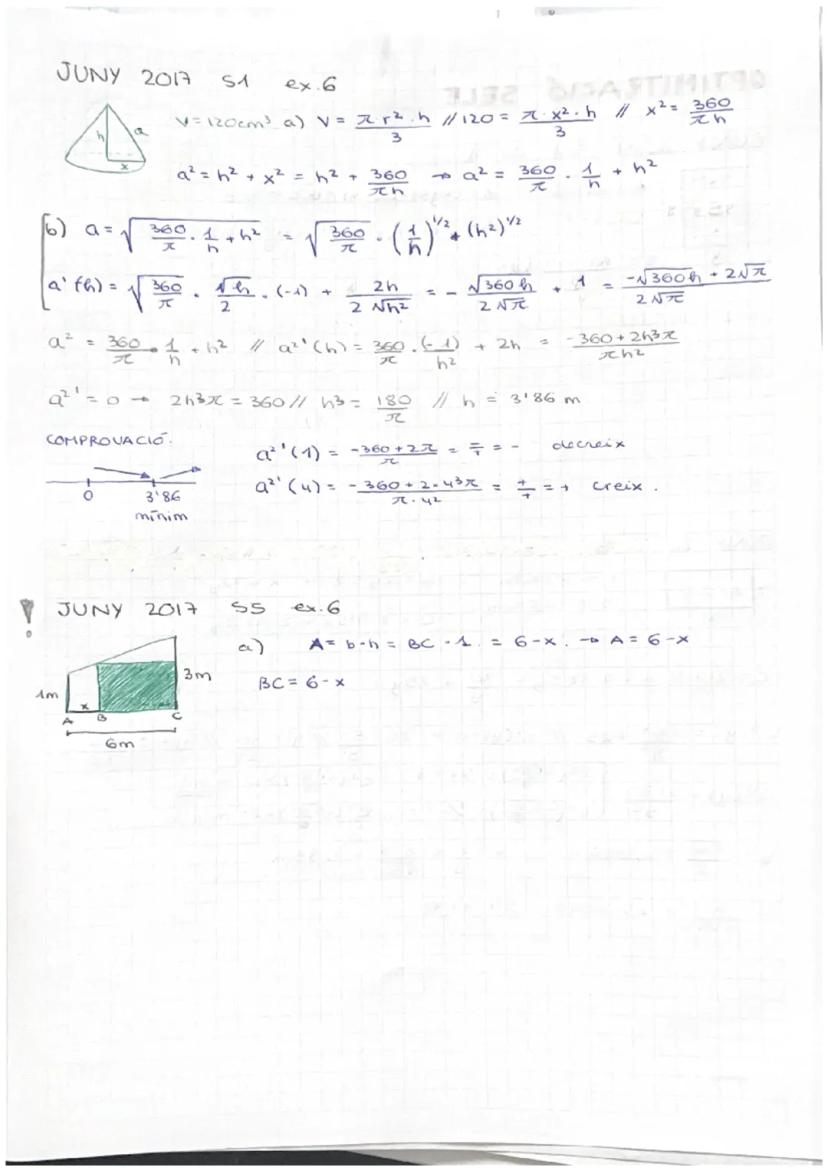 JUNY 2017 S1 ex.6
h a x
V=120cm³ a) V = π r² · h / 3 // 120 = π · x² · h / 3 // x² = 360 / πh
a² = h² + x² = h² + 360 / πh → a² = 360 / π · 1 / h + h²
b) a = √(360 / π · 1 / h + h²) = √(360 / π) · (1 / h)^1/2 + (h²)^1/2
a'(h) = √(360 / π) · √h / 2 · (-1) + 2h / 2√h² = - √360h / 2√π + 1 = -√360h + 2√π / 2√π
a² = 360 / π · 1 / h + h² // a²'(h) = 360 / π · (-1) / h² + 2h = -360 + 2h³π / πh²
a²' = 0 → 2h³π = 360 // h³ = 180 / π // h = 3'86 m
COMPROVACIÓ:
a²'(1) = -360 + 2π / π = - / + = - decreix
a²'(4) = -360 + 2·4³π / π·4² = + / + = + creix.
0 3'86
mínim
! JUNY 2017 S5 ex.6
a) A = b·h = BC · 1 = 6-x. → A = 6-x
BC = 6-x
1m 3m
A x B C
6m